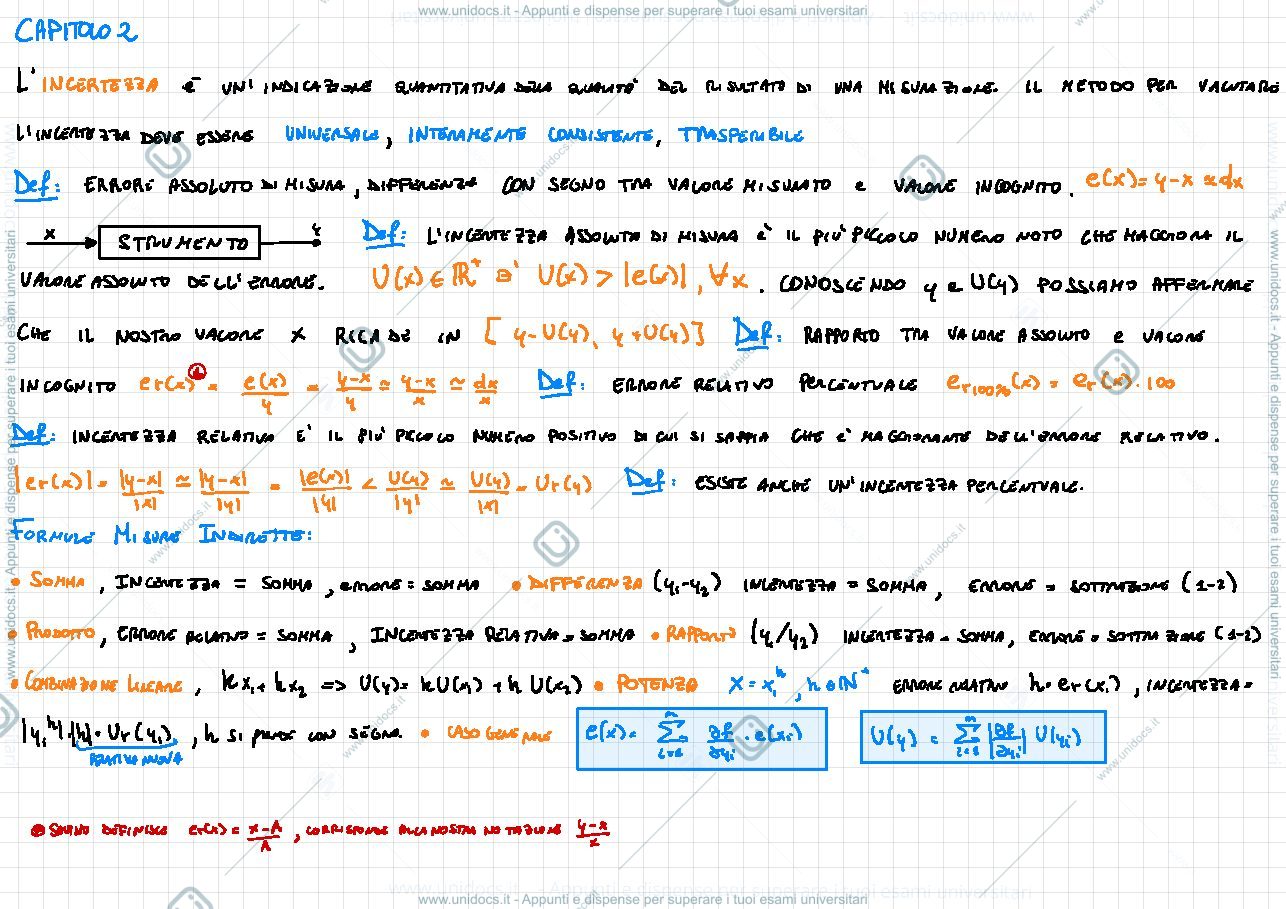 www.unidocs.it - Appunti e dispense per superare i tuoi esami universitari
CAPITOLO 2
L'INCERTEZZA è UN'INDICAZIONE QUANTITATIVA DELLA QUALITÀ DEL RISULTATO DI UNA MISURAZIONE. IL METODO PER VALUTARE
L'INCERTEZZA DEVE ESSERE UNIVERSALE, INTERNAMENTE CONSISTENTE, TRASFERIBILE
Def: ERRORE ASSOLUTO DI MISURA, DIFFERENZA CON SEGNO TRA VALORE MISURATO e VALORE INCOGNITO. e(x) = y-x ≈ dx
x STRUMENTO y Def: L'INCERTEZZA ASSOLUTA DI MISURA è IL PIÙ PICCOLO NUMERO NOTO CHE MAGGIORA IL
VALORE ASSOLUTO DELL'ERRORE. U(x) ∈ ℝ⁺ ∋' U(x) > |e(x)|, ∀x. CONOSCENDO y e U(y) POSSIAMO AFFERMARE
CHE IL NOSTRO VALORE x RICADE IN [y-U(y), y+U(y)] Def: RAPPORTO TRA VALORE ASSOLUTO e VALORE
INCOGNITO er(x) = e(x)/y = y-x/y ≃ y-x/x ≃ dx/x Def: ERRORE RELATIVO PERCENTUALE er100%(x) = er(x)·100
Def: INCERTEZZA RELATIVA È IL PIÙ PICCOLO NUMERO POSITIVO DI CUI SI SAPPIA CHE È MAGGIORANTE DELL'ERRORE RELATIVO.
|er(x)| = |y-x|/|x| ≃ |y-x|/|y| = |e(x)|/|y| < U(y)/|y| ≃ U(y)/|x| = Ur(y) Def: ESISTE ANCHE UN'INCERTEZZA PERCENTUALE.
FORMULE MISURE INDIRETTE:
• SOMMA, INCERTEZZA = SOMMA, ERRORE = SOMMA • DIFFERENZA (y₁-y₂) INCERTEZZA = SOMMA, ERRORE = SOTTRAZIONE (1-2)
• PRODOTTO, ERRORE RELATIVO = SOMMA, INCERTEZZA RELATIVA = SOMMA • RAPPORTO (y₁/y₂) INCERTEZZA = SOMMA, ERRORE = SOTTRAZIONE (1-2)
• COMBINAZIONE LINEARE, kx₁+hx₂ => U(y) = kU(x₁) + hU(x₂) • POTENZA X = x₁ʰ, h∈ℕ⁺ ERRORE RELATIVO h·er(x₁), INCERTEZZA =
|y₁ʰ|·|h|·Ur(y₁), h SI PRENDE CON SEGNO • CASO GENERALE e(x) = Σ ∂f/∂yi · e(xi) U(y) = Σ |∂f/∂yi| U(yi)
RELATIVA NUOVA
DEFINISCE er(x) = x-A/A, CORRISPONDE ALLA NOSTRA NOTAZIONE y-x/x
www.unidocs.it - Appunti e dispense per superare i tuoi esami universitari